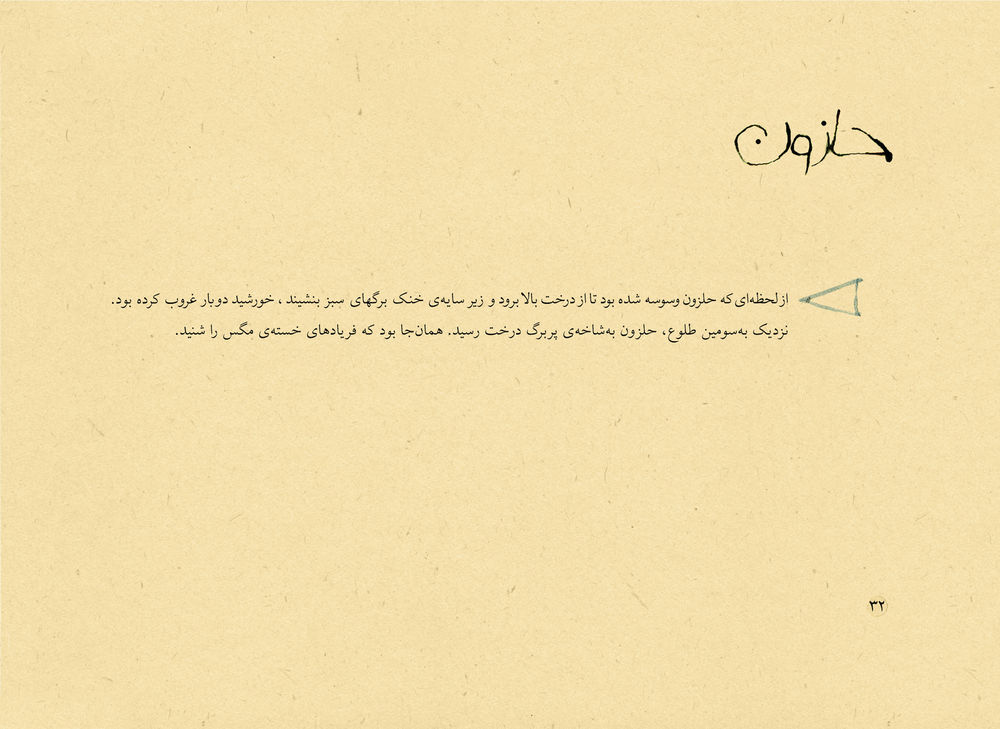 حلزون
از لحظه‌ای که حلزون وسوسه شده بود تا از درخت بالا برود و زیر سایه‌ی خنک برگهای سبز بنشیند ، خورشید دوبار غروب کرده بود.
نزدیک به‌سومین طلوع، حلزون به‌شاخه‌ی پربرگ درخت رسید. همان‌جا بود که فریادهای خسته‌ی مگس را شنید.
۳۲